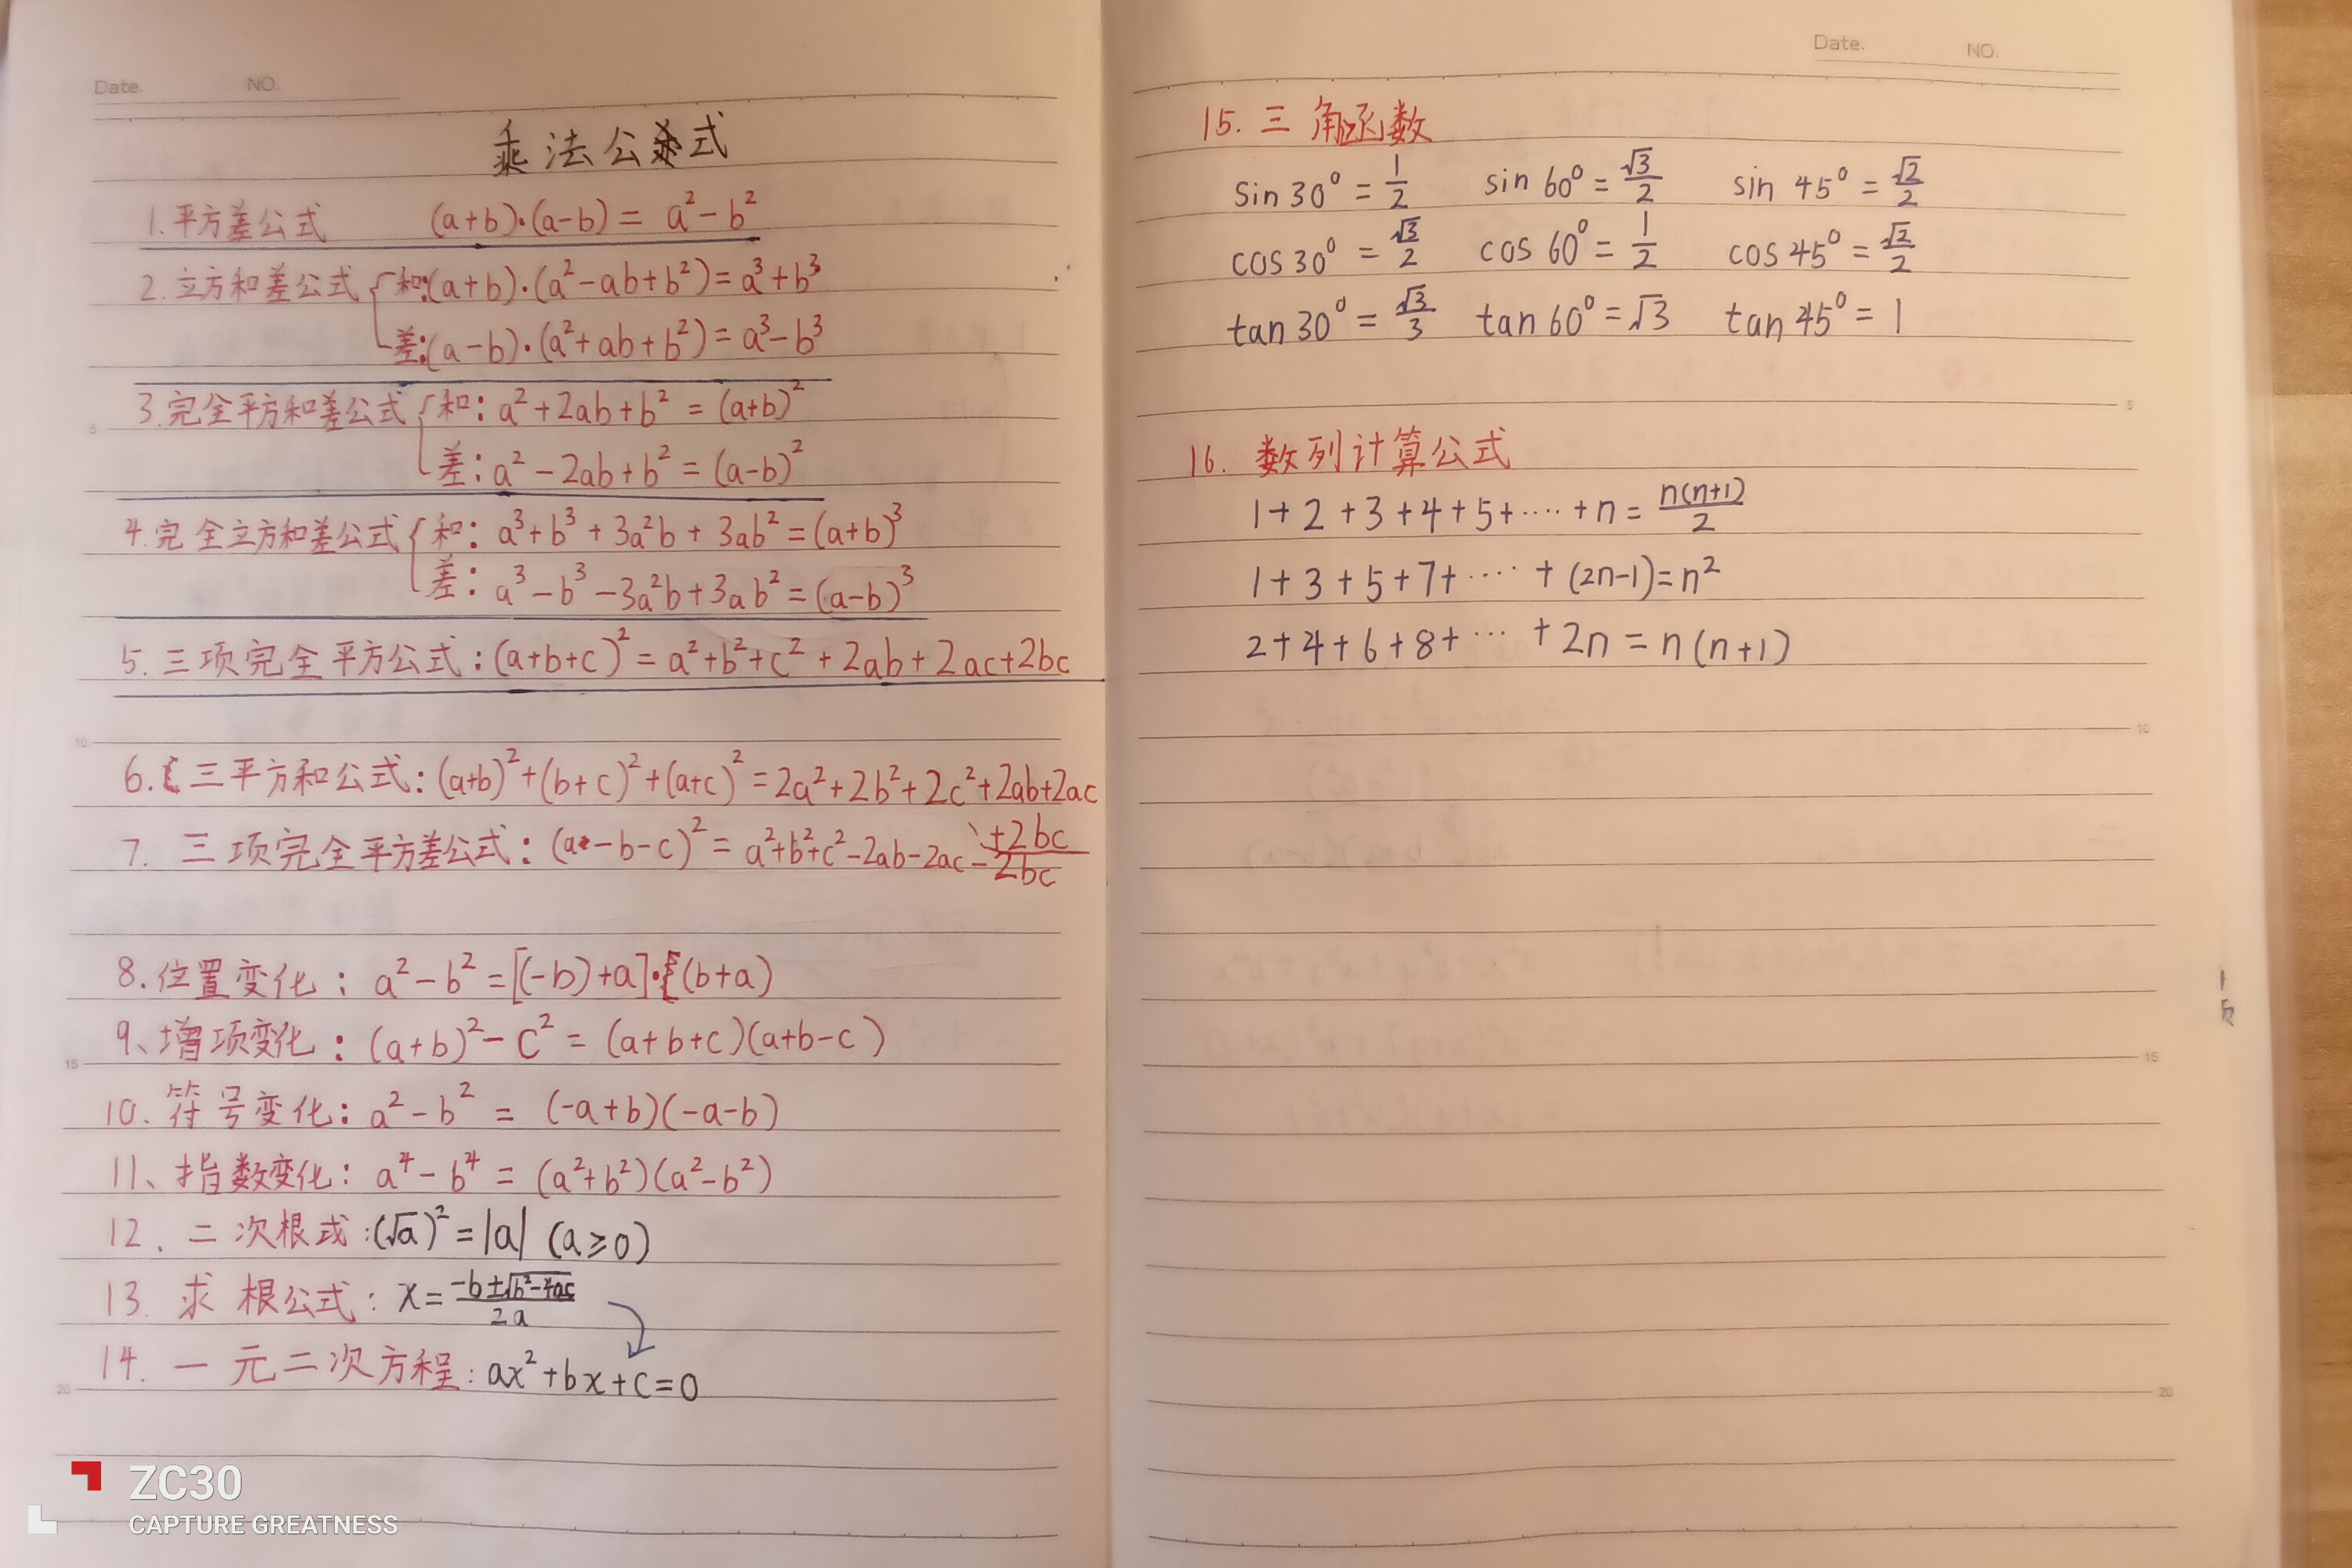 Date. NO.
乘法公式
1.平方差公式 (a+b)·(a-b) = a²-b²
2.立方和差公式 { 和:(a+b)·(a²-ab+b²)=a³+b³
差:(a-b)·(a²+ab+b²)=a³-b³
3.完全平方和差公式 { 和: a²+2ab+b² = (a+b)²
差: a²-2ab+b² = (a-b)²
4.完全立方和差公式 { 和: a³+b³+3a²b+3ab²=(a+b)³
差: a³-b³-3a²b+3ab²=(a-b)³
5.三项完全平方公式:(a+b+c)²=a²+b²+c²+2ab+2ac+2bc
6.三平方和公式:(a+b)²+(b+c)²+(a+c)²=2a²+2b²+2c²+2ab+2ac
+2bc
7. 三项完全平方差公式:(a-b-c)²= a²+b²+c²-2ab-2ac-2bc
8.位置变化: a²-b²=[(-b)+a]·(b+a)
9、增项变化: (a+b)²-c² = (a+b+c)(a+b-c)
10.符号变化: a²-b² = (-a+b)(-a-b)
11、指数变化: a⁴-b⁴ = (a²+b²)(a²-b²)
12.二次根式:(√a)²=|a| (a≥0)
13.求根公式: x=(-b±√(b²-4ac))/2a
14.一元二次方程: ax²+bx+c=0
5
10
15
20
ZC30
CAPTURE GREATNESS
Date. NO.
15.三角函数
sin30°=1/2 sin60°=√3/2 sin45°=√2/2
cos30°=√3/2 cos60°=1/2 cos45°=√2/2
tan30°=√3/3 tan60°=√3 tan45°=1
16.数列计算公式
1+2+3+4+5+····+n=n(n+1)/2
1+3+5+7+····+(2n-1)=n²
2+4+6+8+···+2n=n(n+1)
5
10
15
20